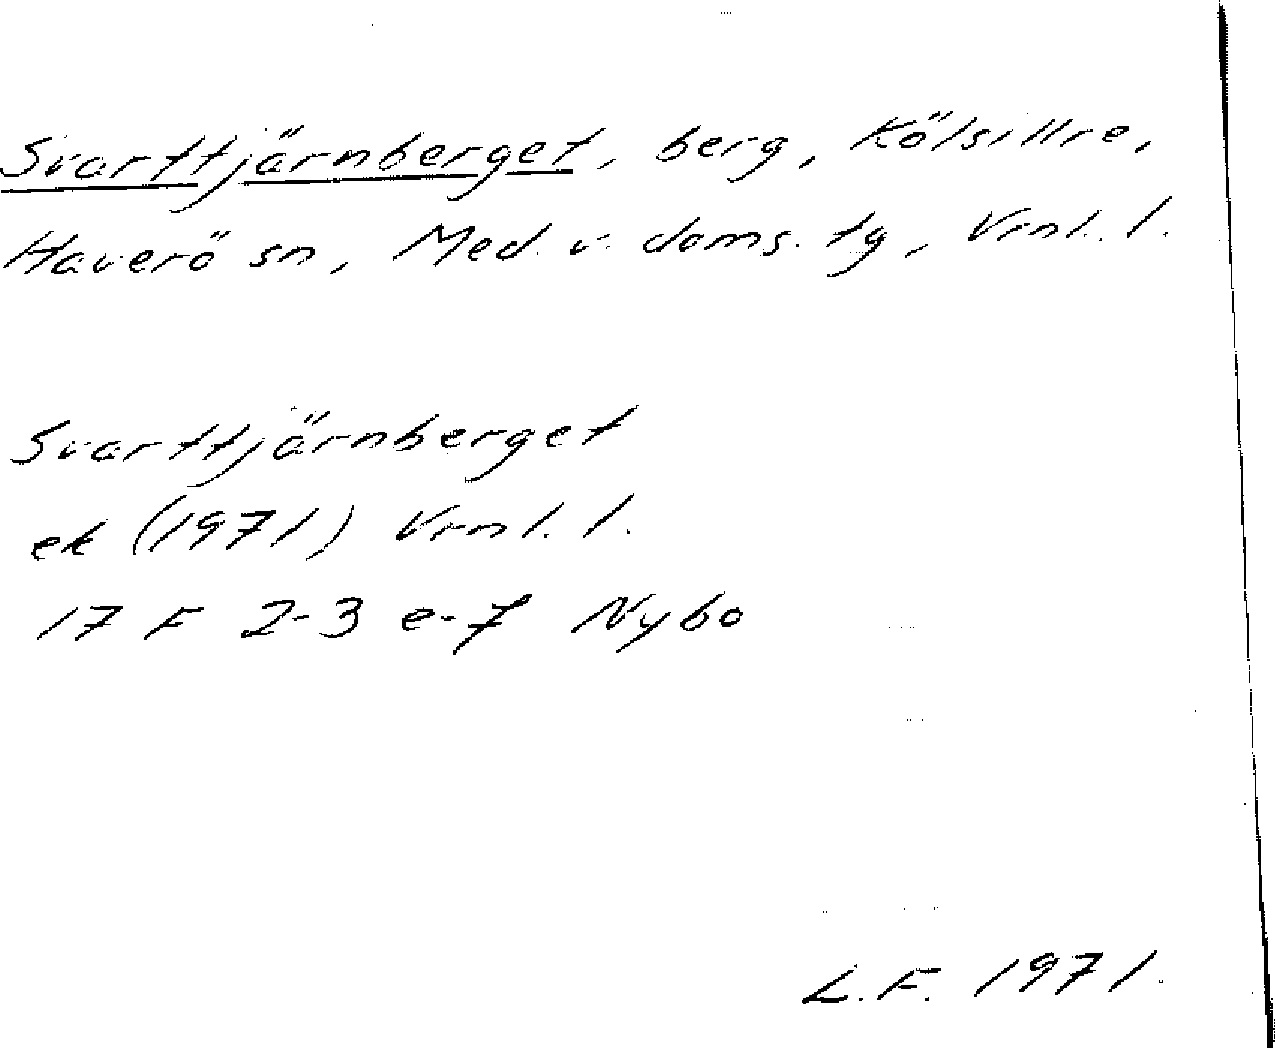 Svarttjärnberget, berg, Kölsillre,
Haverö sn, Med. v. doms. tg, Vrnl. l.
Svarttjärnberget
ek (1971) Vrnl. l.
17 F 2-3 e-f Nybo
L.F. 1971.